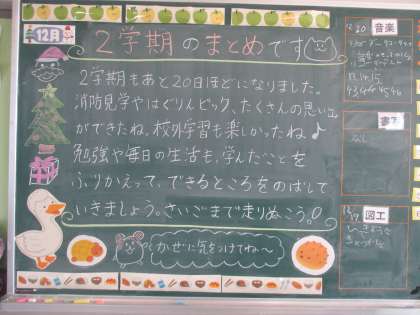 12月
2学期のまとめです
2学期もあと20日ほどになりました。
消防見学やはぐりんピック、たくさんの思い出
ができたね。校外学習も楽しかったね♪
勉強や毎日の生活も、学んだことを
ふりかえって、できるところをのばして
いきましょう。さいごまで走りぬこう。!
かぜに気をつけてね〜
音楽
13, 14, 15
43 44 45 46
書写
なし
図工